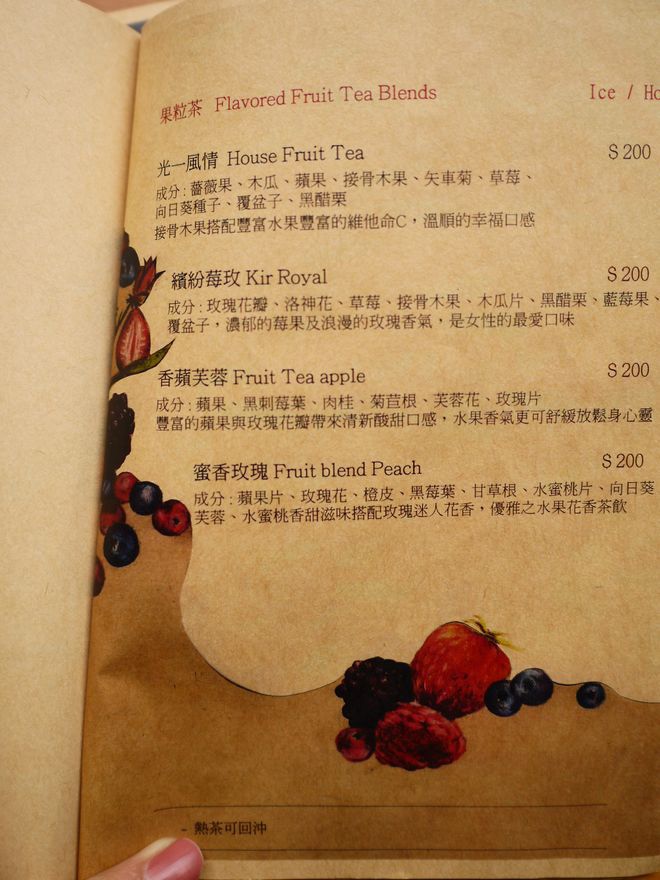 果粒茶 Flavored Fruit Tea Blends Ice / Ho
光一風情 House Fruit Tea $200
成分:薔薇果、木瓜、蘋果、接骨木果、矢車菊、草莓、
向日葵種子、覆盆子、黑醋栗
接骨木果搭配豐富水果豐富的維他命C,溫順的幸福口感
繽紛莓玫 Kir Royal $200
成分:玫瑰花瓣、洛神花、草莓、接骨木果、木瓜片、黑醋栗、藍莓果、
覆盆子,濃郁的莓果及浪漫的玫瑰香氣,是女性的最愛口味
香蘋芙蓉 Fruit Tea apple $200
成分:蘋果、黑刺莓葉、肉桂、菊苣根、芙蓉花、玫瑰片
豐富的蘋果與玫瑰花瓣帶來清新酸甜口感,水果香氣更可舒緩放鬆身心靈
蜜香玫瑰 Fruit blend Peach $200
成分:蘋果片、玫瑰花、橙皮、黑莓葉、甘草根、水蜜桃片、向日葵
芙蓉、水蜜桃香甜滋味搭配玫瑰迷人花香,優雅之水果花香茶飲
- 熱茶可回沖